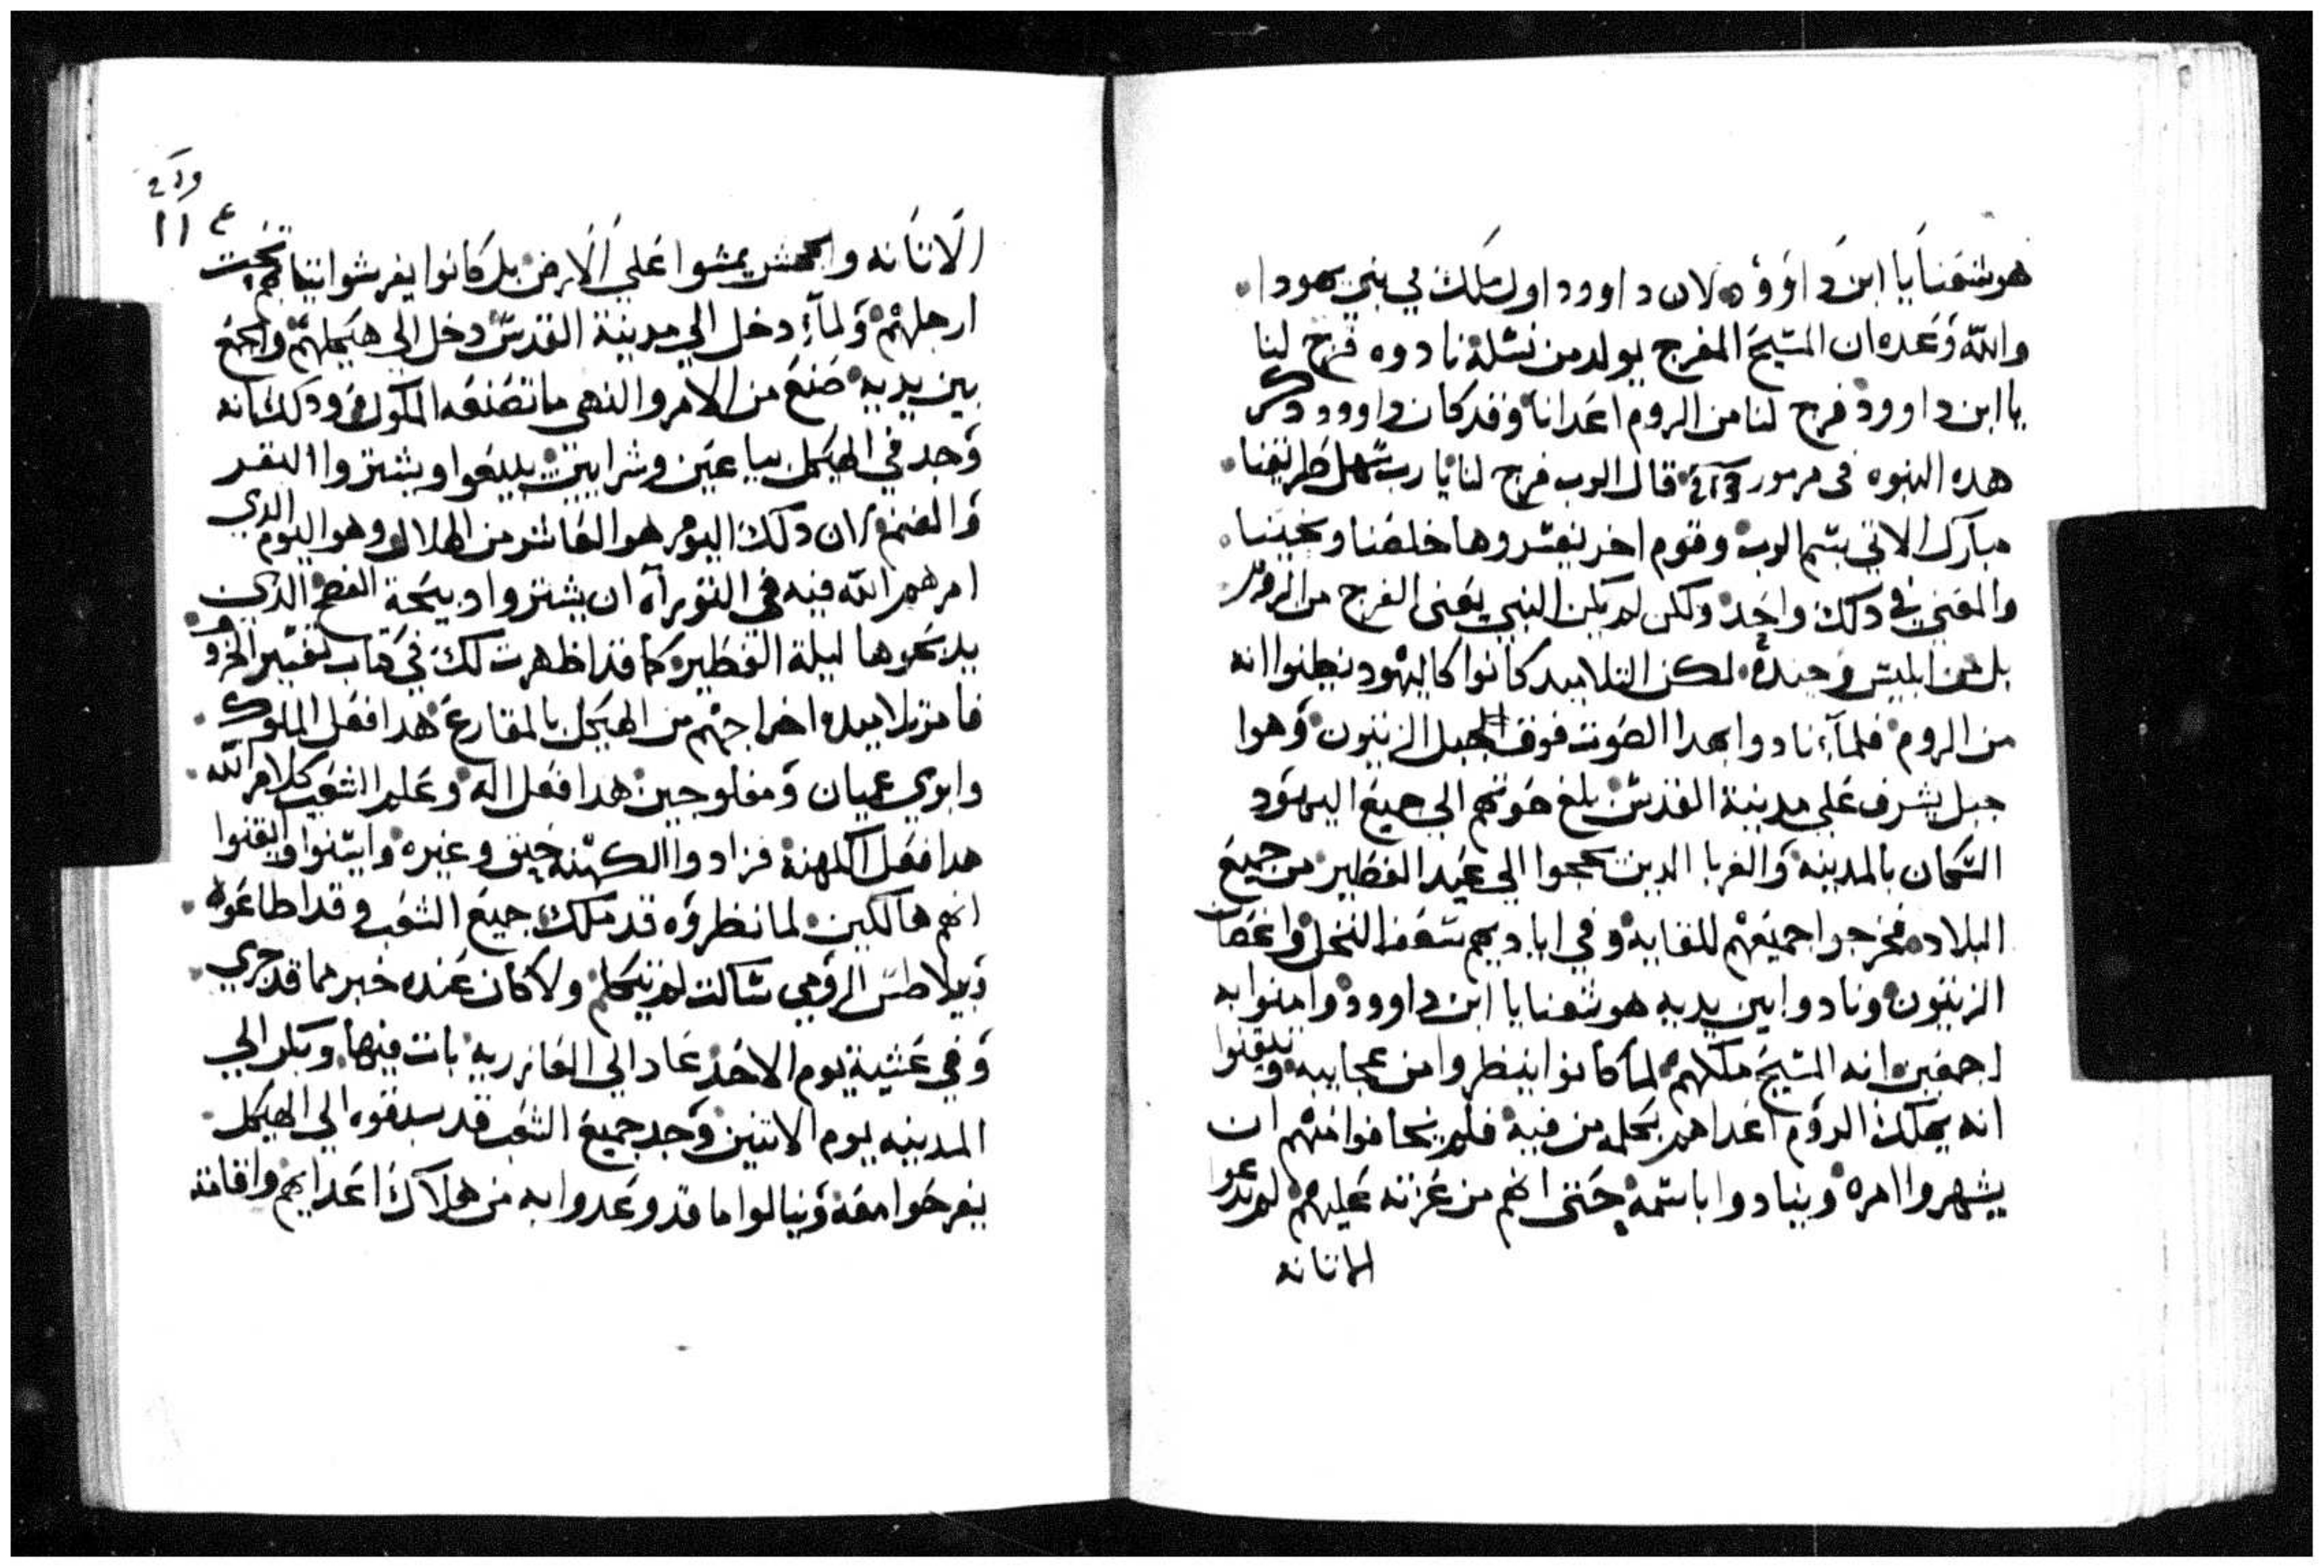 هوشعنا يا ابن داوود لان داوود اول ملك في بني يهودا
والله وعده ان المسيح المفرج يولد من نسله نادوه فرج لنا
يا ابن داوود فرج لنا من الروم اعدانا وقد كان داوود دكر
هده النبوه في مزمور قال الرب فرج لنا يا رب سهل طريقنا
مبارك الاتي بسم الرب وقوم اخر يفسروها خلصنا ونجينا
والمعني في دلك واحد ولكن لم يكن النبي يعني الفرج من الروم
بل من ابليس وجنده لكن التلاميد كانوا كاليهود يظنوا انه
من الروم فلماء نادوا بهدا الصوت فوق الجبل الزيتون وهوا
جبل يشرف علي مدينة القدس بلغ صوتهم الي جميع اليهود
السكان بالمدينه والغربا الدين يحجوا الي عيد الفطير من جميع
البلاد فخرجوا جميعهم للقايه وفي اياديهم سعف النخل واغصان
الزيتون ونادوا بين يديه هوشعنا يا ابن داوود وامنوا به
اجمعين انه المسيح ملكهم لما كانوا ينظروا من عجايبه وتيقنوا
انه يهلك الروم اعداهم بكلمه من فيه فلم يخافوا منهم ان
يشهروا امره وينادوا باسمه حتي انهم من عزته عليهم لم يدعوا
الاتانه
الاتانه والجحش يمشوا علي الارض بل كانوا يفرشوا تيابهم تحت
ارجلهم ولماء دخل الي مدينة القدس دخل الي هيكلهم واجمع
بين يديه صنع من الامر والنهي ما تصنعه الملوك ودلك انه
وجد في الهيكل بياعين وشرايين يبيعوا ويشتروا البقر
والغنم لان دلك اليوم هو العاشر من الهلال وهو اليوم الدي
امرهم الله فيه في التوراه ان يشتروا دبيحة الفصح الدي
يدبحوها ليلة الفطير كما قد اظهرت لك في كتاب تفسير الخرو
فامر تلاميده اخراجهم من الهيكل بالمقارع هدا فعل الملوك
وابري عميان ومفلوجين هدا فعل اله وعلم الشعب كلام الله
هدا فعل الكهنة فزادوا الكهنه حنق وغيره وايسوا وايقنوا
انهم هالكين لما نظروه قد ملك جميع الشعب وقد اطاعوه
وبيلاطس الرومي ساكت لم يتكلم ولا كان عنده خبر مما قد جري
وفي عشية يوم الاحد عاد الي العازريه بات فيها وبكر الي
المدينه يوم الاتنين وجد جميع الشعب قد سبقوه الي الهيكل
يفرحوا معه وينالوا ما قد وعدوا به من هلاك اعدايهم واقامة